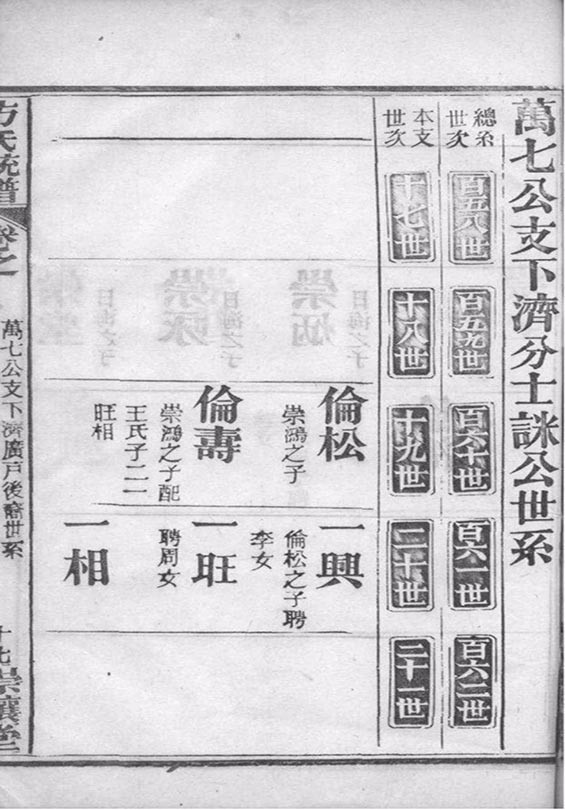 萬七公支下濟分士詸公世系
總系世次
百五八世
百五九世
百六十世
百六一世
百六二世
本支世次
十七世
十八世
十九世
二十世
二十一世
倫松
崇鴻之子
倫壽
崇鴻之子配
王氏子二一
旺相
一興
倫松之子聘
李女
一旺
聘周女
一相
方氏統譜
卷之
萬七公支下濟廣戶後裔世系
十七